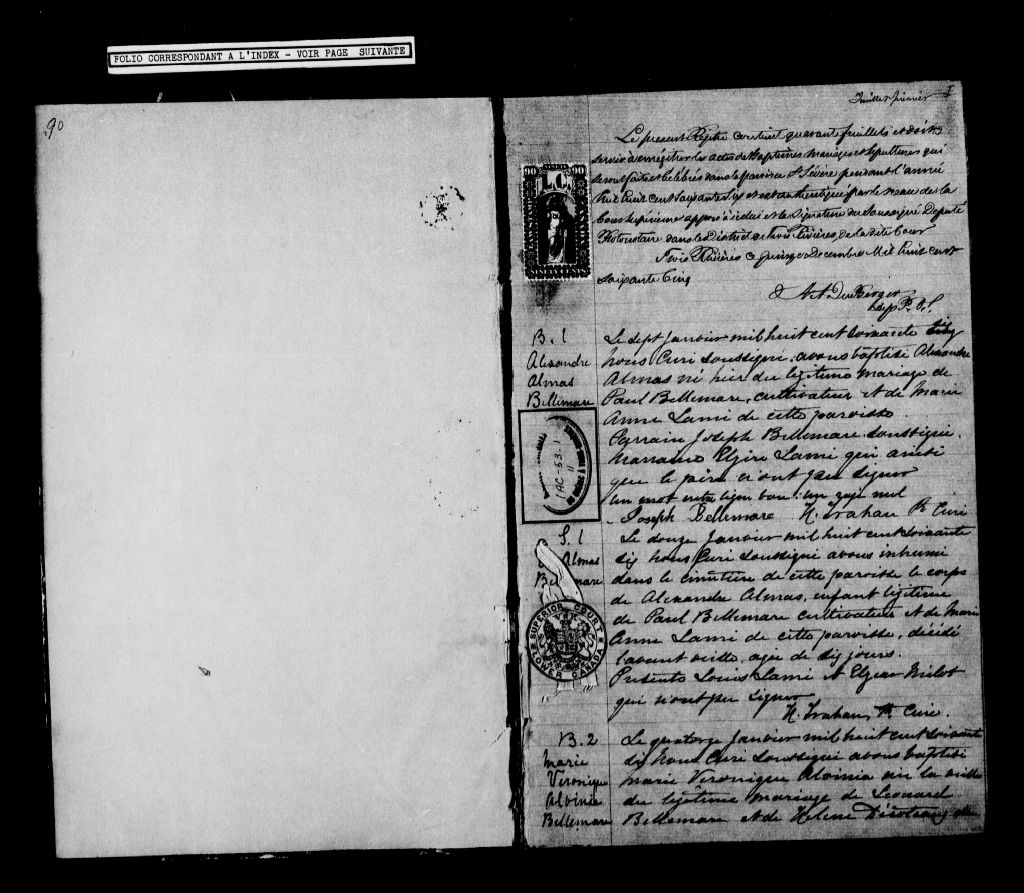 FOLIO CORRESPONDANT A L'INDEX - VOIR PAGE SUIVANTE
90
Feuillet premier 1
Le present Régitre contient quarante feuillets et doit
servir à enrégitrer les actes de Baptêmes Mariages et Sépultures qui
seront faits et célébrés dans la paroisse St Sévère pendant l'année
huit cent soixante Six et est authentiqué par le sceau de la
Cour Supérieure apposé à icelui et la Signature du Soussigné Deputé
Protonotaire dans le District de Trois Rivières, de la dite Cour
Trois Rivières ce quinze Decembre Mil huit cent
soixante Cinq
dep P.C.S.
90 NINETY 90
L.C.
NINETY CENTS
B. 1
Alexandre
Almas
Bellemare
Le sept Janvier mil huit cent soixante
Nous Curé soussigné, avons baptisé Alexandre
Almas né hier du légitime mariage de
Paul Bellemare, cultivateur et de Marie
Anne Lami de cette paroisse.
Parrain Joseph Bellemare soussigné.
Marraine Elzire Lami qui ainsi
que le père n'ont pu signer
Un mot entre ligne bon. Un raye nul
Joseph Bellemare N. Trahan Ptr Curé
IAC-53.1
11
S. 1
Almas
Bellemare
Le douze Janvier mil huit cent soixante
six nous Curé soussigné avons inhumé
dans le cimetière de cette paroisse le corps
de Alexandre Almas, enfant légitime
de Paul Bellemare cultivateur et de Marie
Anne Lami de cette paroisse, décédé
l'avant veille, agé de six jours.
Présents Louis Lami et Elzear Milot
qui n'ont pu signer
N. Trahan, Ptr Curé.
SUPERIOR COURT
LOWER CANADA
B. 2
Marie
Veronique
Alvinia
Bellemare
Le quatorze Janvier mil huit cent soixante
six nous Curé soussigné avons baptisé
Marie Veronique née la veille
du légitime mariage de Léonard
Bellemare et de Hélène